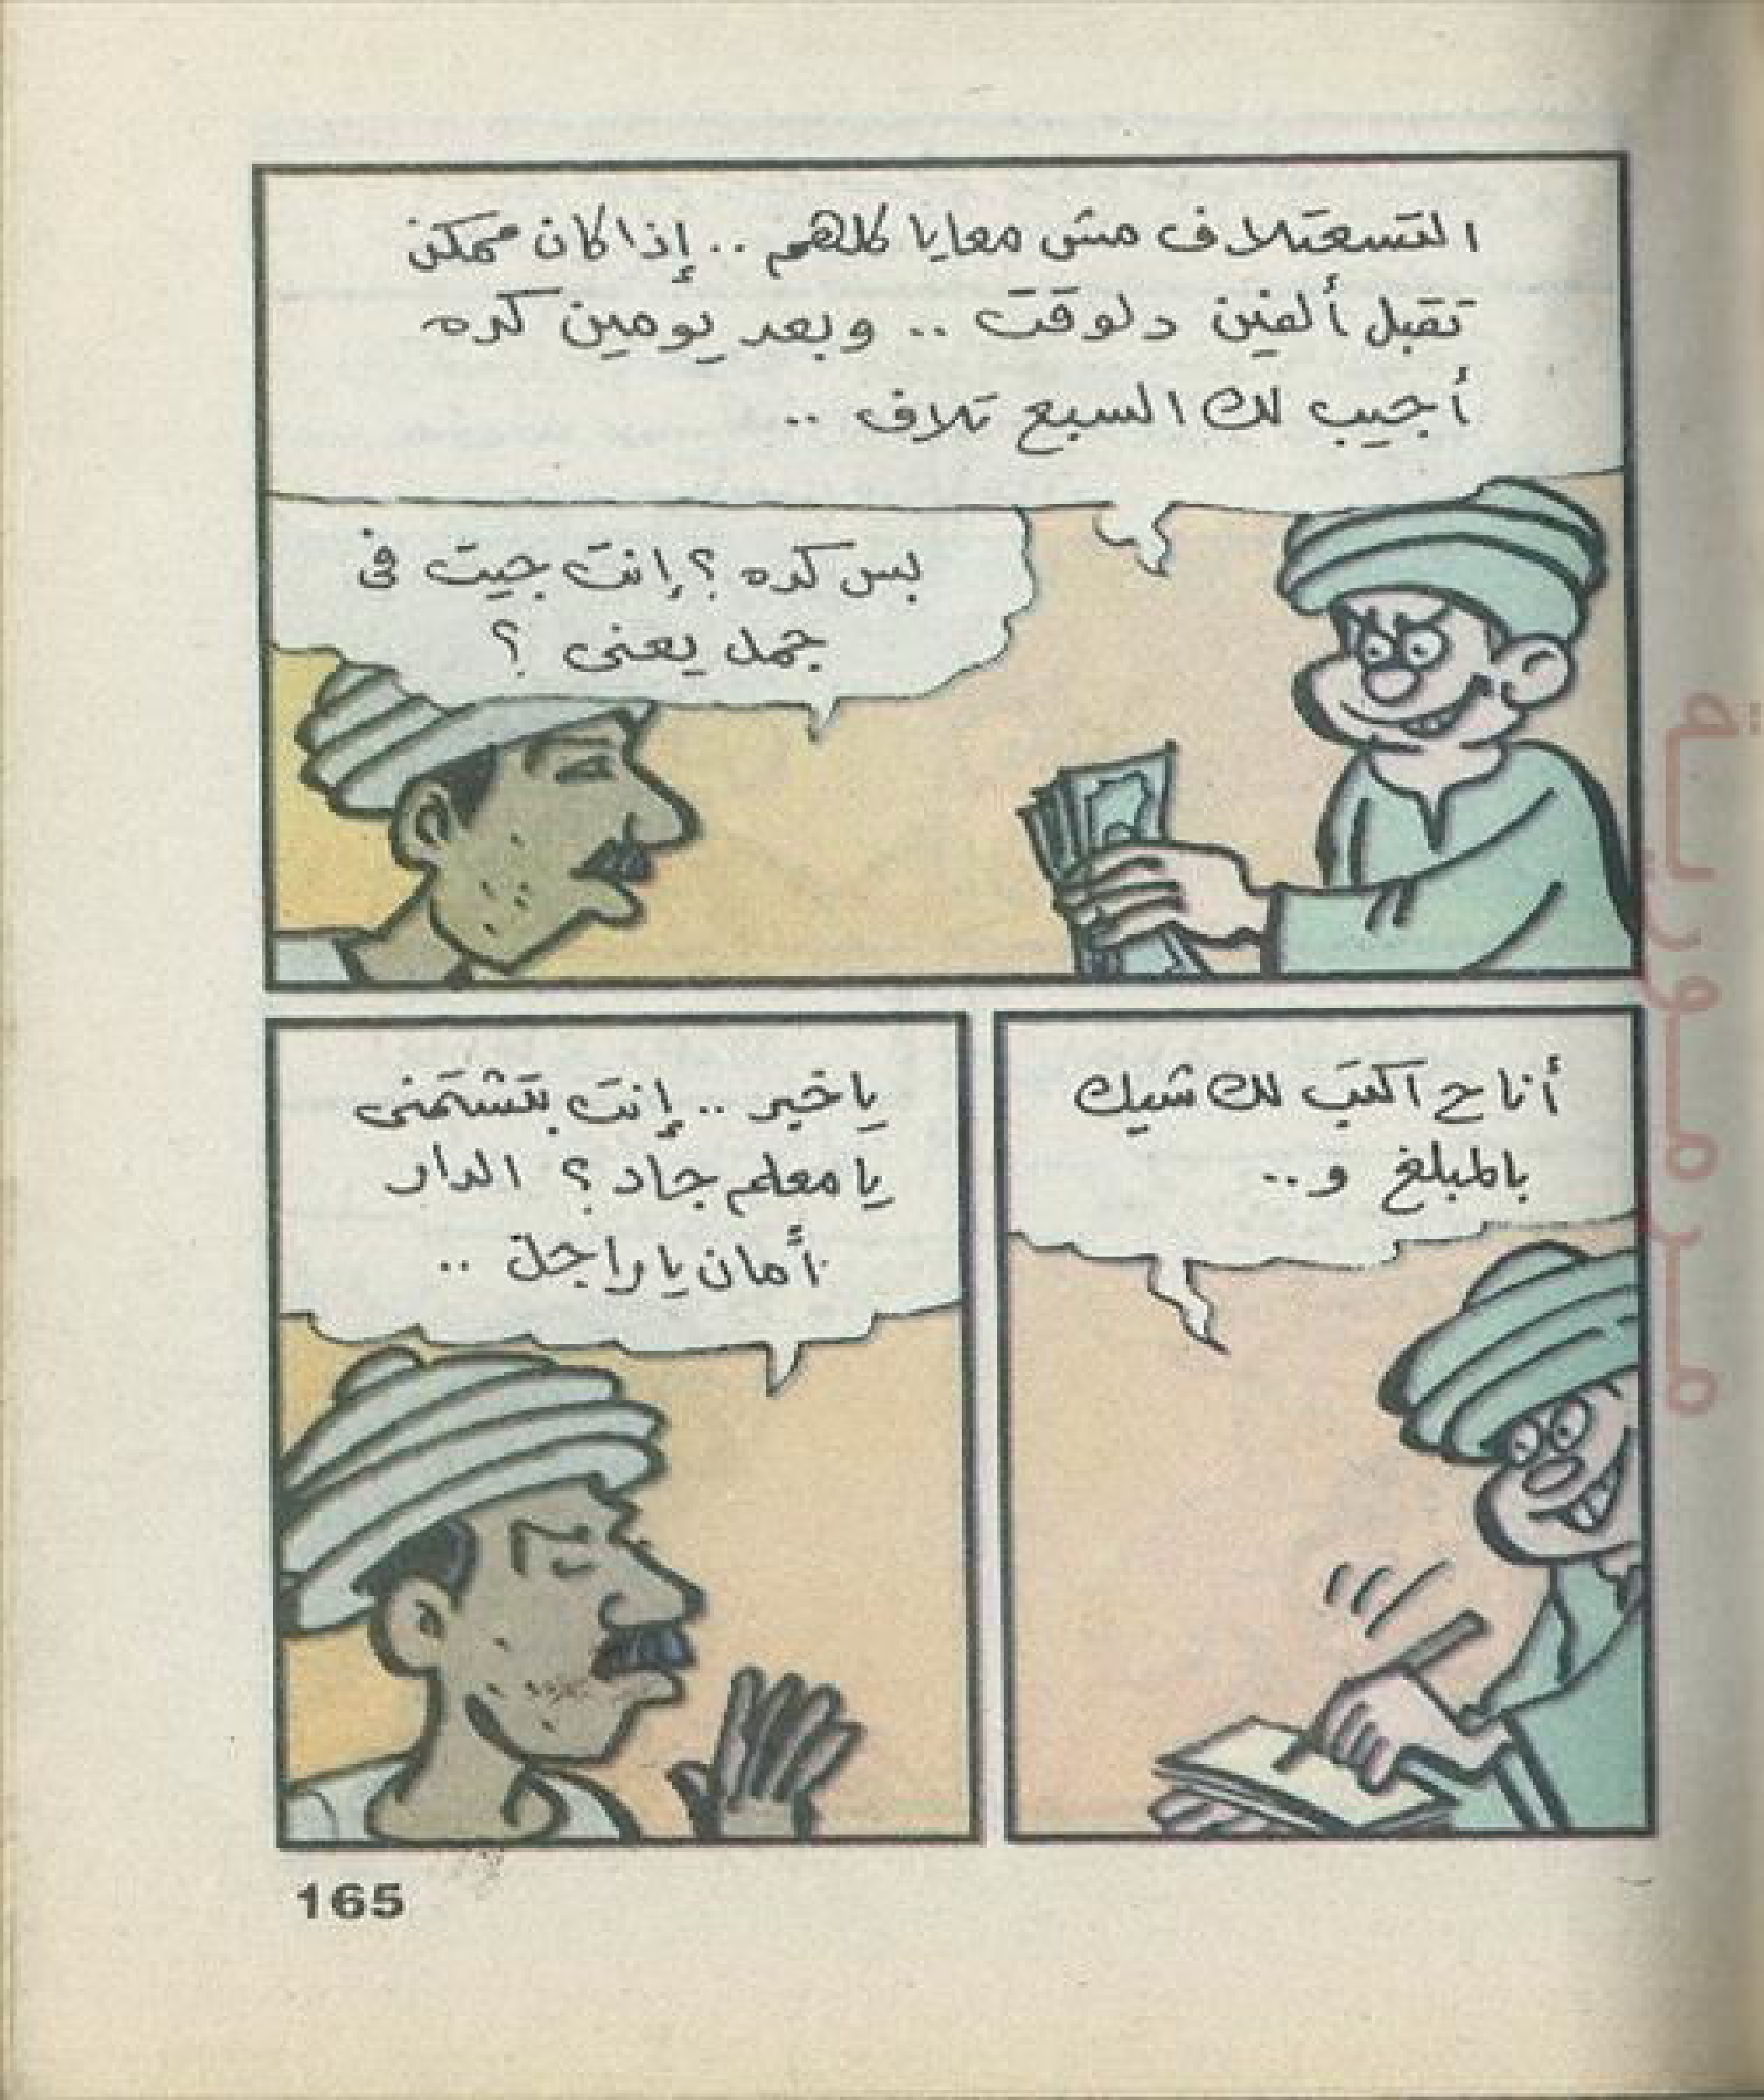 التسعتلاف مش معايا كلهم .. إذا كان ممكن
تقبل ألفين دلوقت .. وبعد يومين كده
أجيب لك السبع تلاف ..
بس كده ؟ إنت جيت فى
جمل يعنى ؟
أنا ح اكتب لك شيك
بالمبلغ و ..
يا خبر .. إنت بتشتمنى
يا معلم جاد ؟ الدار
أمان يا راجل ..
165